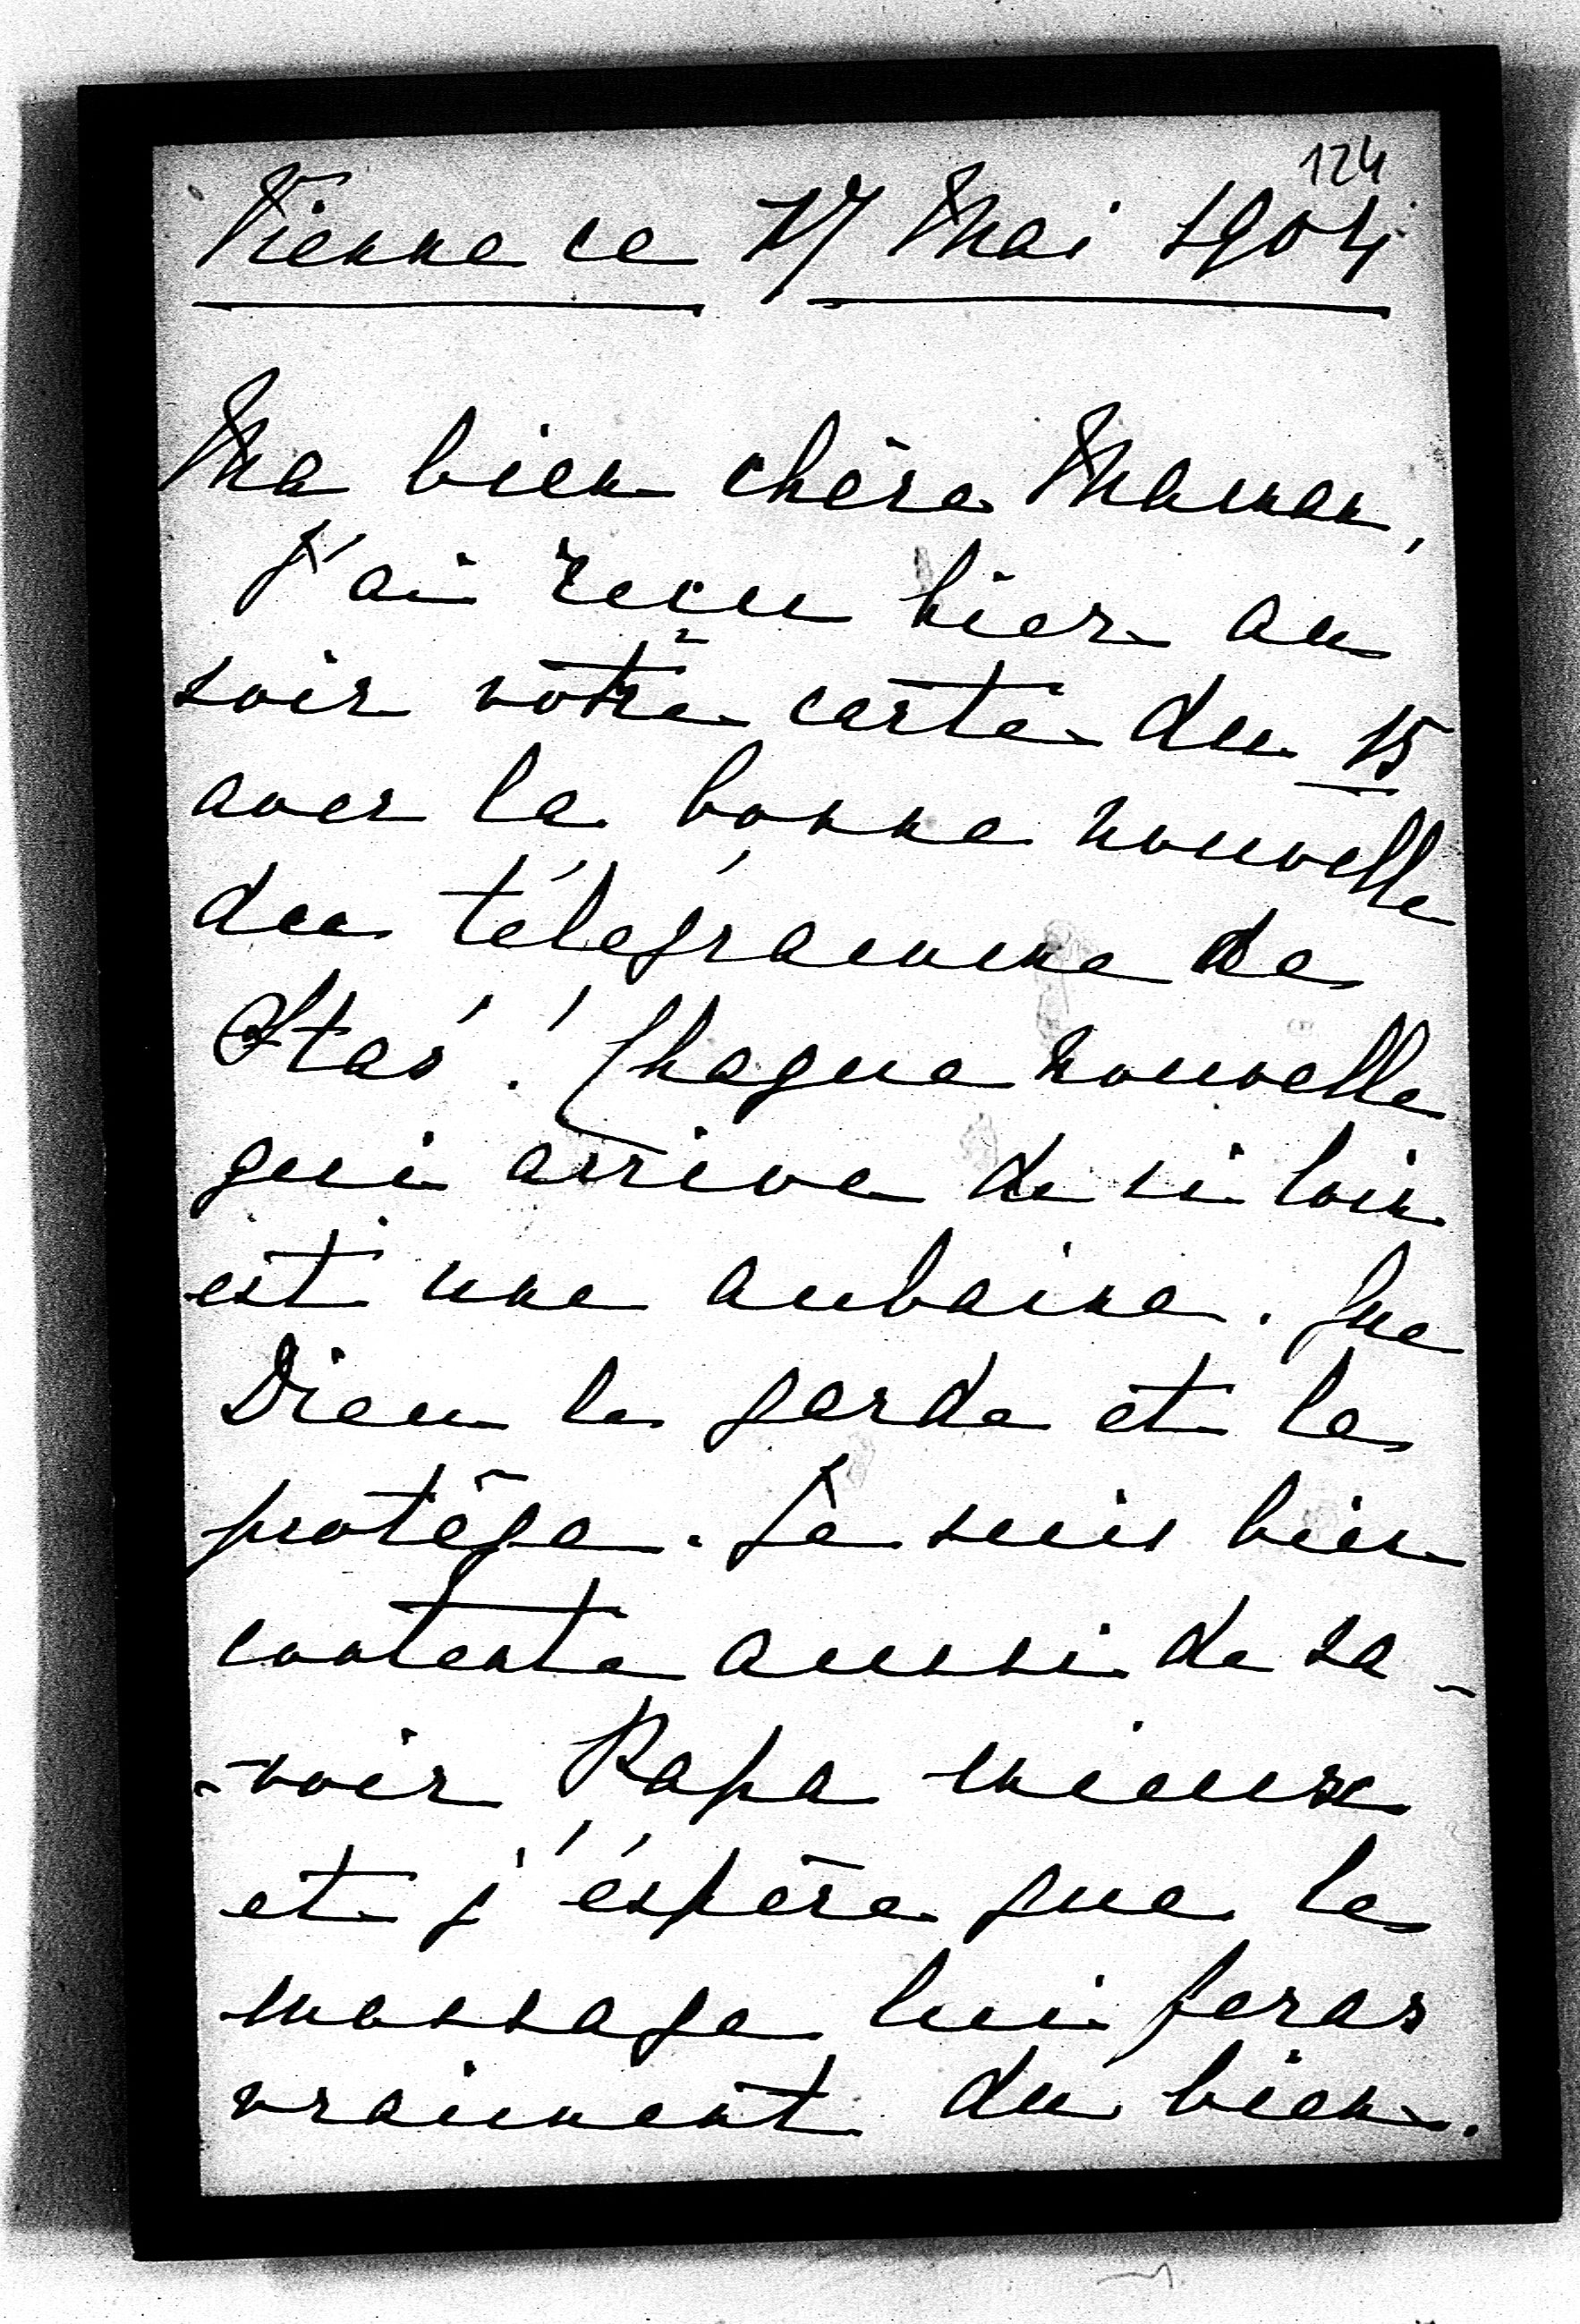 124
Vienne ce 17 Mai 1904
Ma bien chère Maman,
J'ai reçu hier au
soir votre carte du 15
avec la bonne nouvelle
du télégramme de
Staś! Chaque nouvelle
qui arrive de si loin
est une aubaine. Que
Dieu le garde et le
protège. Je suis bien
contente aussi de sa-
-voir Papa mieux
et j'éspère que le
massage lui feras
vraiment du bien.